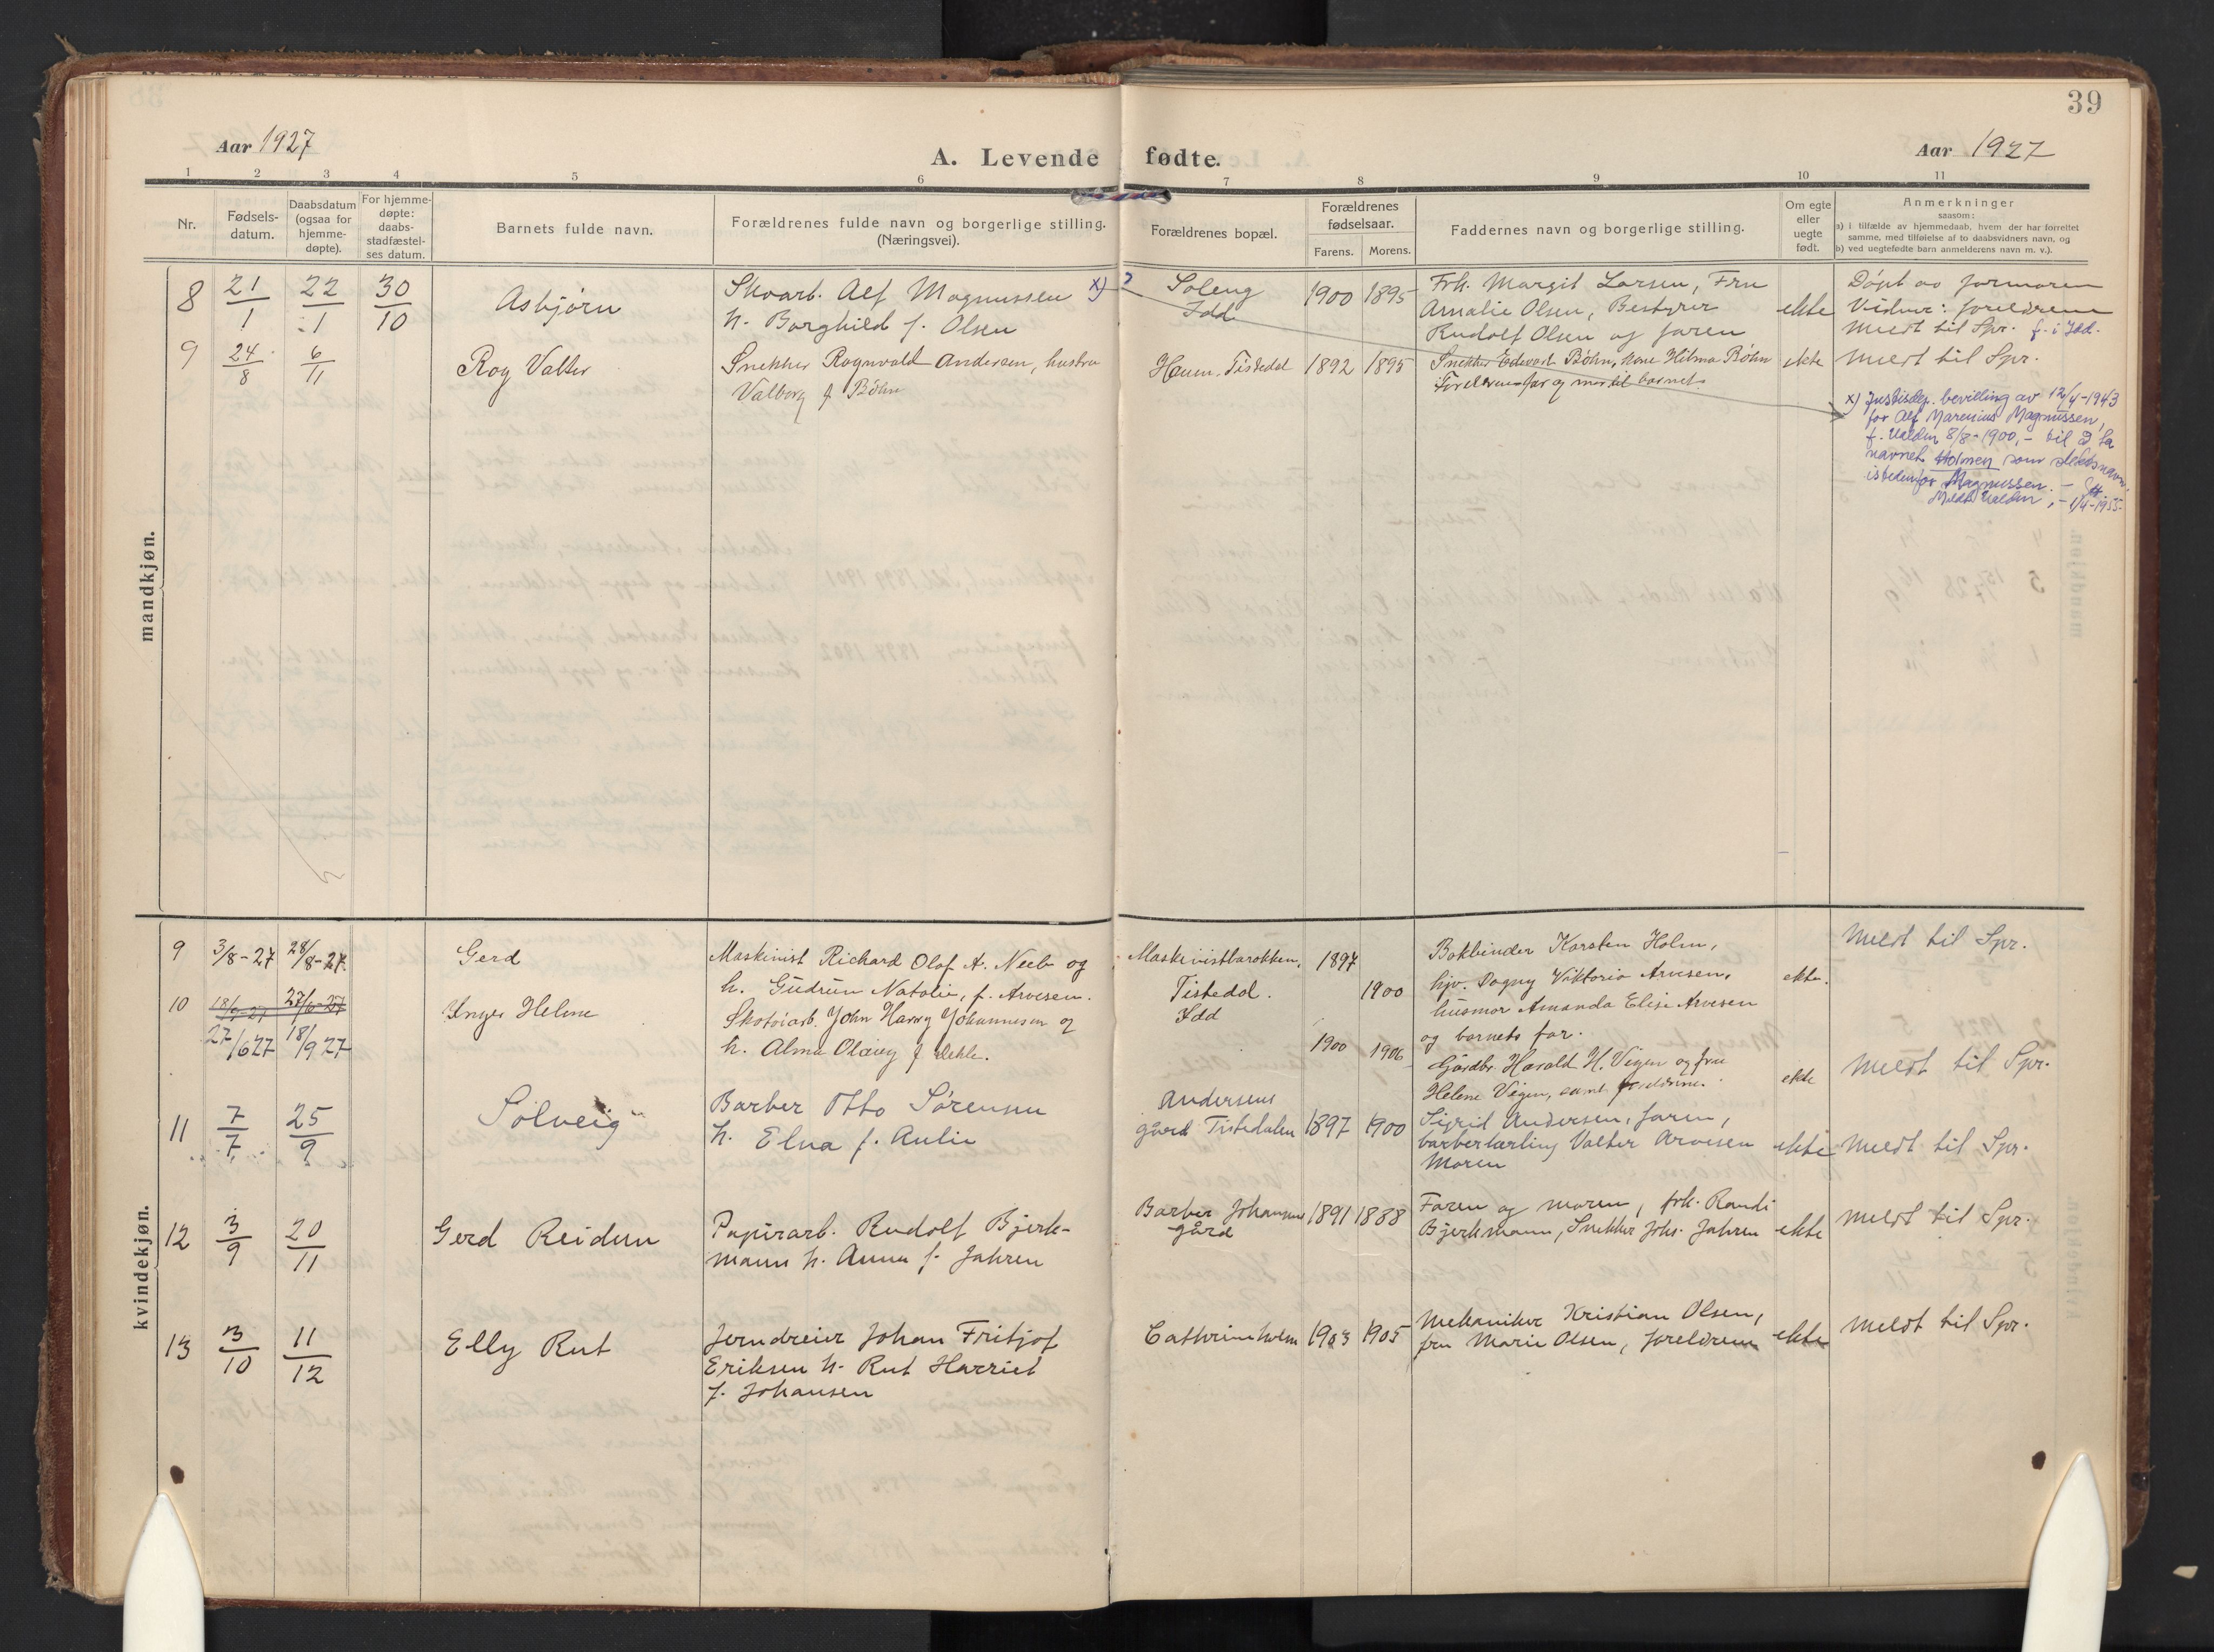 39
Aar 1927
A. Levende fødte.
Aar 1927
1 2 3 4 5 6 7 8 9 10 11
Nr.
Fødsels-
datum.
Daabsdatum
(ogsaa for
hjemme-
døpte).
For hjemme-
døpte:
daabs-
stadfæstel-
ses datum.
Barnets fulde navn.
Forældrenes fulde navn og borgerlige stilling.
(Næringsvei).
Forældrenes bopæl.
Forældrenes
fødselsaar.
Farens. Morens.
Faddernes navn og borgerlige stilling.
Om egte
eller
uegte
født.
Anmerkninger
saasom:
a) i tilfælde av hjemmedaab, hvem der har forrettet
samme, med tilføielse af to daabsvidners navn, og
b) ved uegtefødte barn anmelderens navn m. v.).
mandkjøn.
8 21/1 22/1 30/10 Asbjørn
Skoarb. Alf Magnussen x)
h. Borghild f. Olsen
Soleng
Idd
1900 1895
Frk. Margit Larsen, Fru
Amalie Olsen, Bestyrer
Rudolf Olsen og faren
ekte
Døpt av farmoren
Vidner: foreldrene
Meldt til Spr. f. i Idd.
9 24/8 6/11 Roy Valter
Snekker Ragnvald Andersen, hustru
Valborg f Bøhn
Tistedal 1892 1895
Snekker Edvard Bøhn, kone Hilma Bøhn
Foreldrene far og mor til barnet
ekte Meldt til Spr.
x) Justisdep. bevilling av 12/4-1943
for Alf Marenius Magnussen,
f. Halden 8/8-1900, - til å ta
navnet Holmen som slektsnavn
istedenfor Magnussen. -
Meldt Halden, - 1/4-1955-
kvindekjøn.
9 3/8-27 28/8-27 Gerd
Maskinist Richard Olof A. Neeb og
h. Gudrun Natalie, f. Arvesen.
Maskinistbarakken,
Tistedal.
Idd
1897 1900
Bokbinder Karsten Holm,
hjv. Dagny Viktoria Arvesen,
husmor Amanda Elise Arvesen
og barnets far.
ekte.
Meldt til Spr.
10 18/9-27 27/6-27
27/6 27 18/9 27
Inger Helene
Skotøiarb. John Harry Johannesen og
h. Alma Olausy f Dehle.
1900 1906
Gårdbr. Harald H. Vigen og fru
Helene Vigen, samt foreldrene.
ekte Meldt til Spr.
11 7/7 25/9 Solveig
Barber Otto Sørensen
h. Elna f. Aulie
Andersens
gård Tistedalen 1897 1900
Sigrid Andersen, faren,
barberlærling Valter Arvesen
Moren
ekte Meldt til Spr.
12 3/9 20/11 Gerd Reidun
Papirarb. Rudolf Bjerk-
mann h. Anna f. Jahren
Barber Johansens
gård
1891 1888
Faren og moren, frk. Randi
Bjerkmann, Snekker Johs. Jahren
ekte Meldt til Spr.
13 3/10 11/12 Elly Rut
Jerndreier Johan Fritjof
Eriksen h. Rut Harriet
f. Johansen
Cathrineholm 1903 1905
Mekaniker Kristian Olsen,
fru Marie Olsen, foreldrene
ekte Meldt til Spr.